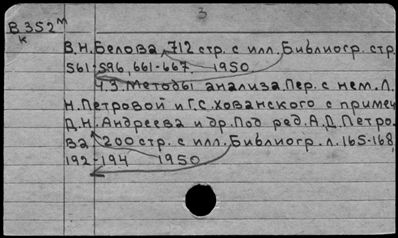 3
В 352 м
к
В.Н.Белова, 712 стр. с илл, Библиогр. стр.
561-596, 661-667. 1950
ч.3. Методы анализа. Пер. с нем. Л.
Н.Петровой и Г.С.Хованского с примеч
Д.Н.Андреева и др. Под ред. А.Д.Петро-
ва, 200 стр. с илл. Библиогр. л. 165-168,
192-194 1950